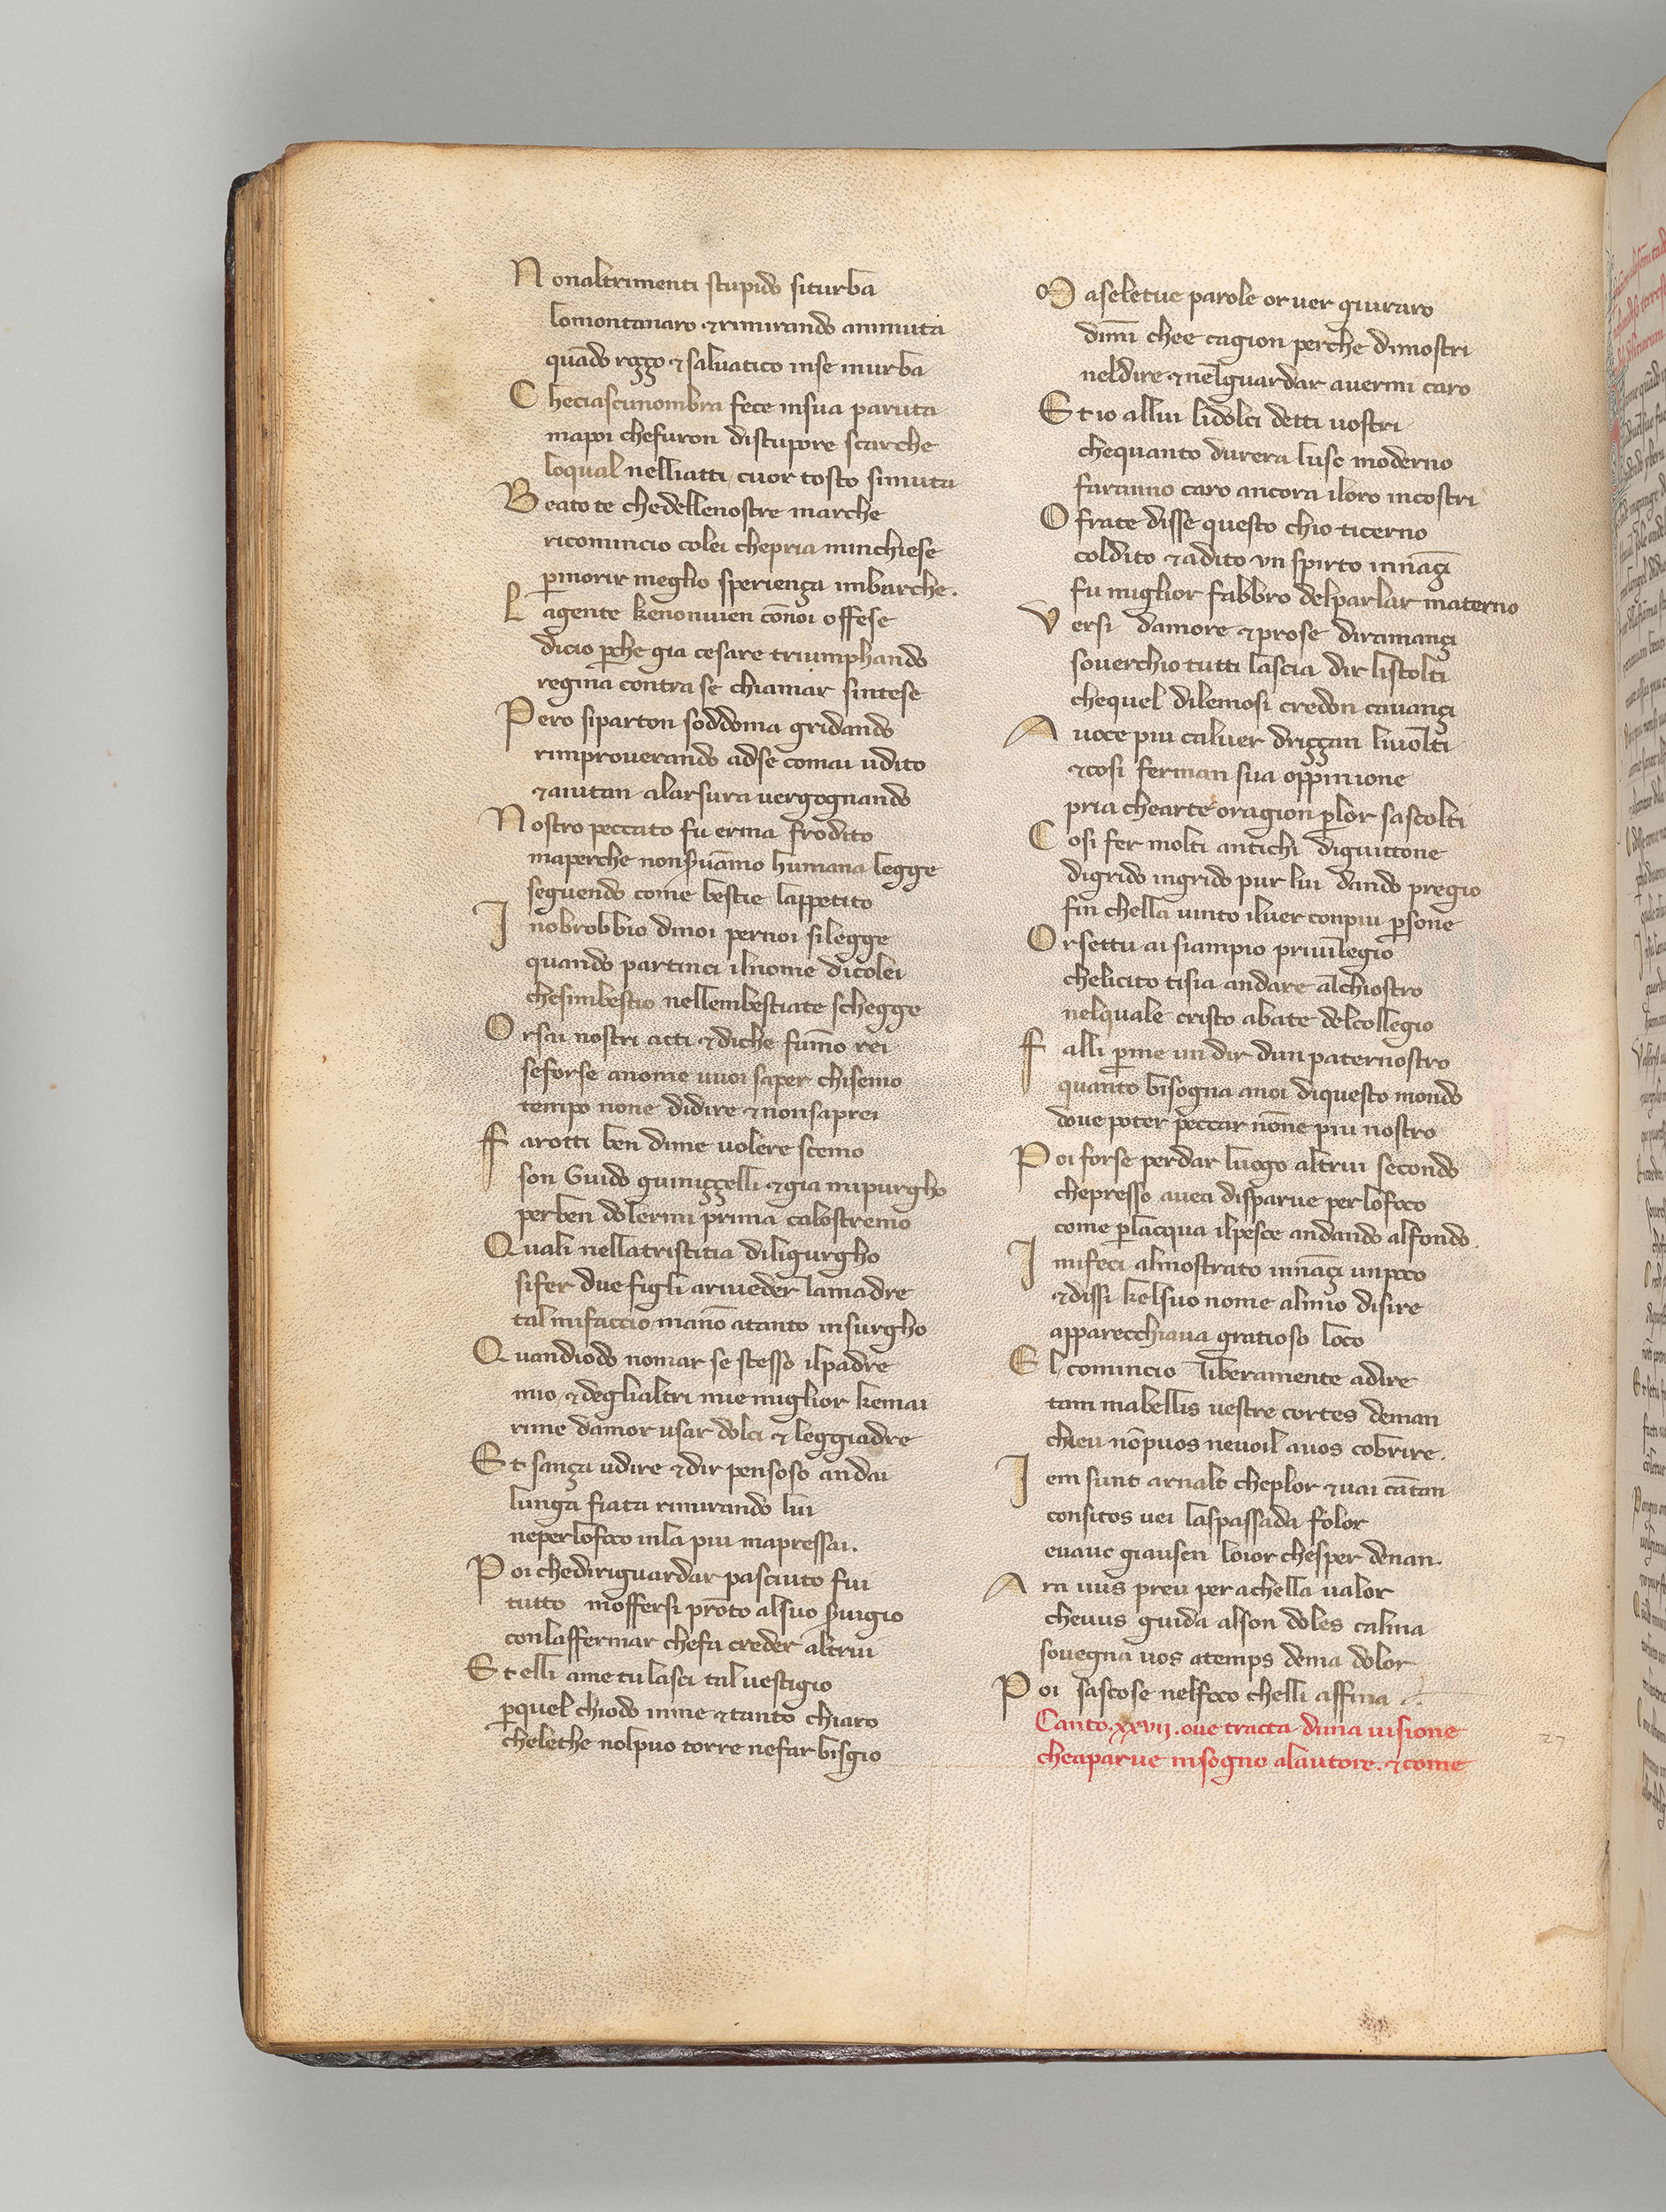 N onaltrimenti stupido siturba
lomontanaro ⁊rimirando ammuta
quādo roççо ⁊ saluatico inse inurba
C heciascunombra fece insua paruta
mapoi chefuron distupore scarche
loqual nelliatti cuor tosto simuta
B eato te chedellenostre marche
ricomincio colei chepria minchiese
ꝑmorir meglio sperienҫa imbarche.
L agente kenonuien cōnoi offese
dicio ꝑche gia cesare triumphando
regina contra se chiamar sintese
P ero siparton soddoma gridando
rimprouerando adse comai udito
⁊aiutan alarsura uergognando
N ostro peccato fu erma frodito
maperche nonẛuāmo humana legge
seguendo come bestie lappetito
I nobrobbio dinoi pernoi silegge
quando partinci ilnome dicolei
chesimbestio nellembestiate schegge
O rsai nostri atti ⁊diche fumō rei
seforse anome uuoi saper chisemo
tempo none didire ⁊nonsaprei
F arotti ben dime uolere scemo
son Guido guiniççelli ⁊gia mipurgho
perben dolermi prima calostremo
Q uali nellatristitia diligurgho
sifer due figli ariueder lamadre
tal mifaccio manō atanto insurgho
Q uandiodo nomar se stesso ilpadre
mio ⁊deglialtri mie miglior kemai
rime damor usar dolci ⁊ leggiadre
E t sança udire ⁊dir pensoso andai
lunga fiata rimirando lui
neperlofoco inla piu mapressai.
P oi chediriguardar pasciuto fui
tutto moffersi prōto alsuo ẛuigio
conlaffermar chefa creder altrui
E t elli ame tu lasci tal uestigio
ꝑquel chiodo inme ⁊tanto chiaro
chelethe nolpuo torre nefar bisgio
M aseletue parole or uer giuraro
dimī chee cagion perche dimostri
neldire ⁊nelguardar auermi caro
E t io allui lidolci detti uostri
chequanto durera luso moderno
faranno caro ancora iloro incostri
O frate disse questo chio ticerno
coldito ⁊adito un spirto innāçi
fu miglior fabbro delparlar materno
V ersi damore ⁊prose diromançi
souerchio tutti lascia dir listolti
chequel dilemosi credon cauançi
A uoce piu caluer driççan liuolti
⁊cosi ferman sua oppinione
pria chearte oragion ꝑlor sascolti
C osi fer molti antichi diguittone
digrido ingrido pur lui dando pregio
fin chella uinto iluer conpiu ꝑsone
O rsettu ai siampio priuilegio
chelicito tisia andare alchiostro
nelquale cristo abate delcollegio
F alli ꝑme un dir dun paternostro
quanto bisogna anoi diquesto mondo
doue poter peccar nōne piu nostro
P oi forse perdar luogo altrui secondo
chepresso auea disparue perlofoco
come ꝑlacqua ilpesce andando alfondo.
I mifeci almostrato innāçi unpoco
⁊dissi kelsuo nome almio disire
apparecchiaua gratioso loco
E l comincio liberamente adire
tam mabellis uestre cortes deman
chieu nōpuos neuoil auos cobrire.
I em sunt arnalt cheplor ⁊uai cātan
consitos uei laspassada folor
euaue giausen loior chesper denan.
A ra uus preu per achella ualor
cheuus guida alson doles calina
souegna uos atemps dema dolor
P oi sascose nelfoco chelli affina
Canto .xxvij. oue tracta duna uisione
cheaparue insogno alautore. ⁊come
27